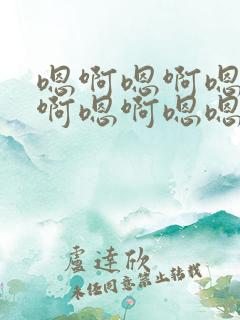 嗯啊嗯啊嗯
啊嗯啊嗯嗯
盧達欣
未經同意禁止轉載